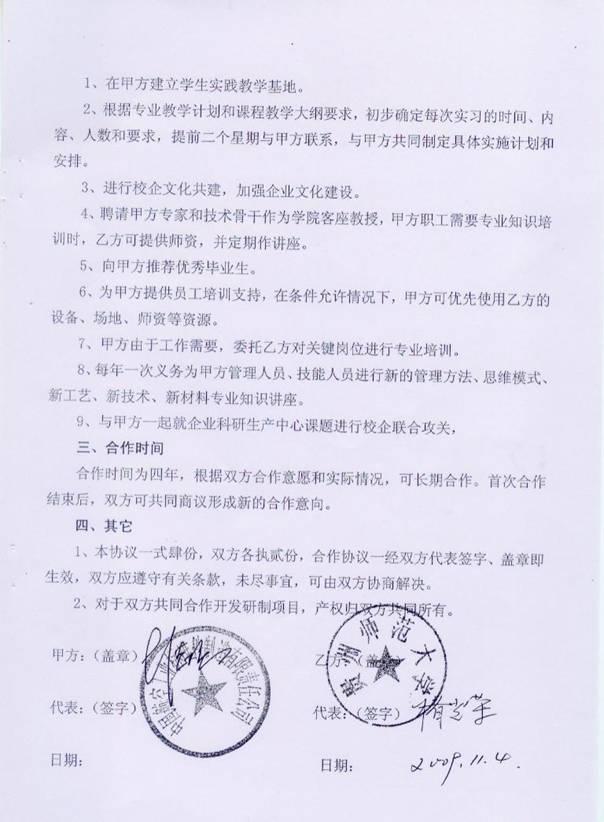 1、在甲方建立学生实践教学基地。
2、根据专业教学计划和课程教学大纲要求，初步确定每次实习的时间、内
容、人数和要求，提前二个星期与甲方联系，与甲方共同制定具体实施计划和
安排。
3、进行校企文化共建，加强企业文化建设。
4、聘请甲方专家和技术骨干作为学院客座教授，甲方职工需要专业知识培
训时，乙方可提供师资，并定期作讲座。
5、向甲方推荐优秀毕业生。
6、为甲方提供员工培训支持，在条件允许情况下，甲方可优先使用乙方的
设备、场地、师资等资源。
7、甲方由于工作需要，委托乙方对关键岗位进行专业培训。
8、每年一次义务为甲方管理人员、技能人员进行新的管理方法、思维模式、
新工艺、新技术、新材料专业知识讲座。
9、与甲方一起就企业科研生产中心课题进行校企联合攻关，
三、合作时间
合作时间为四年，根据双方合作意愿和实际情况，可长期合作。首次合作
结束后，双方可共同商议形成新的合作意向。
四、其它
1、本协议一式肆份，双方各执贰份，合作协议一经双方代表签字、盖章即
生效，双方应遵守有关条款，未尽事宜，可由双方协商解决。
2、对于双方共同合作开发研制项目，产权归双方共同所有。
甲方：（盖章） 乙方：（盖
有限责任公司
师范大学
代表：（签字） 代表：（签字）
日期： 日期： 2009.11.4.